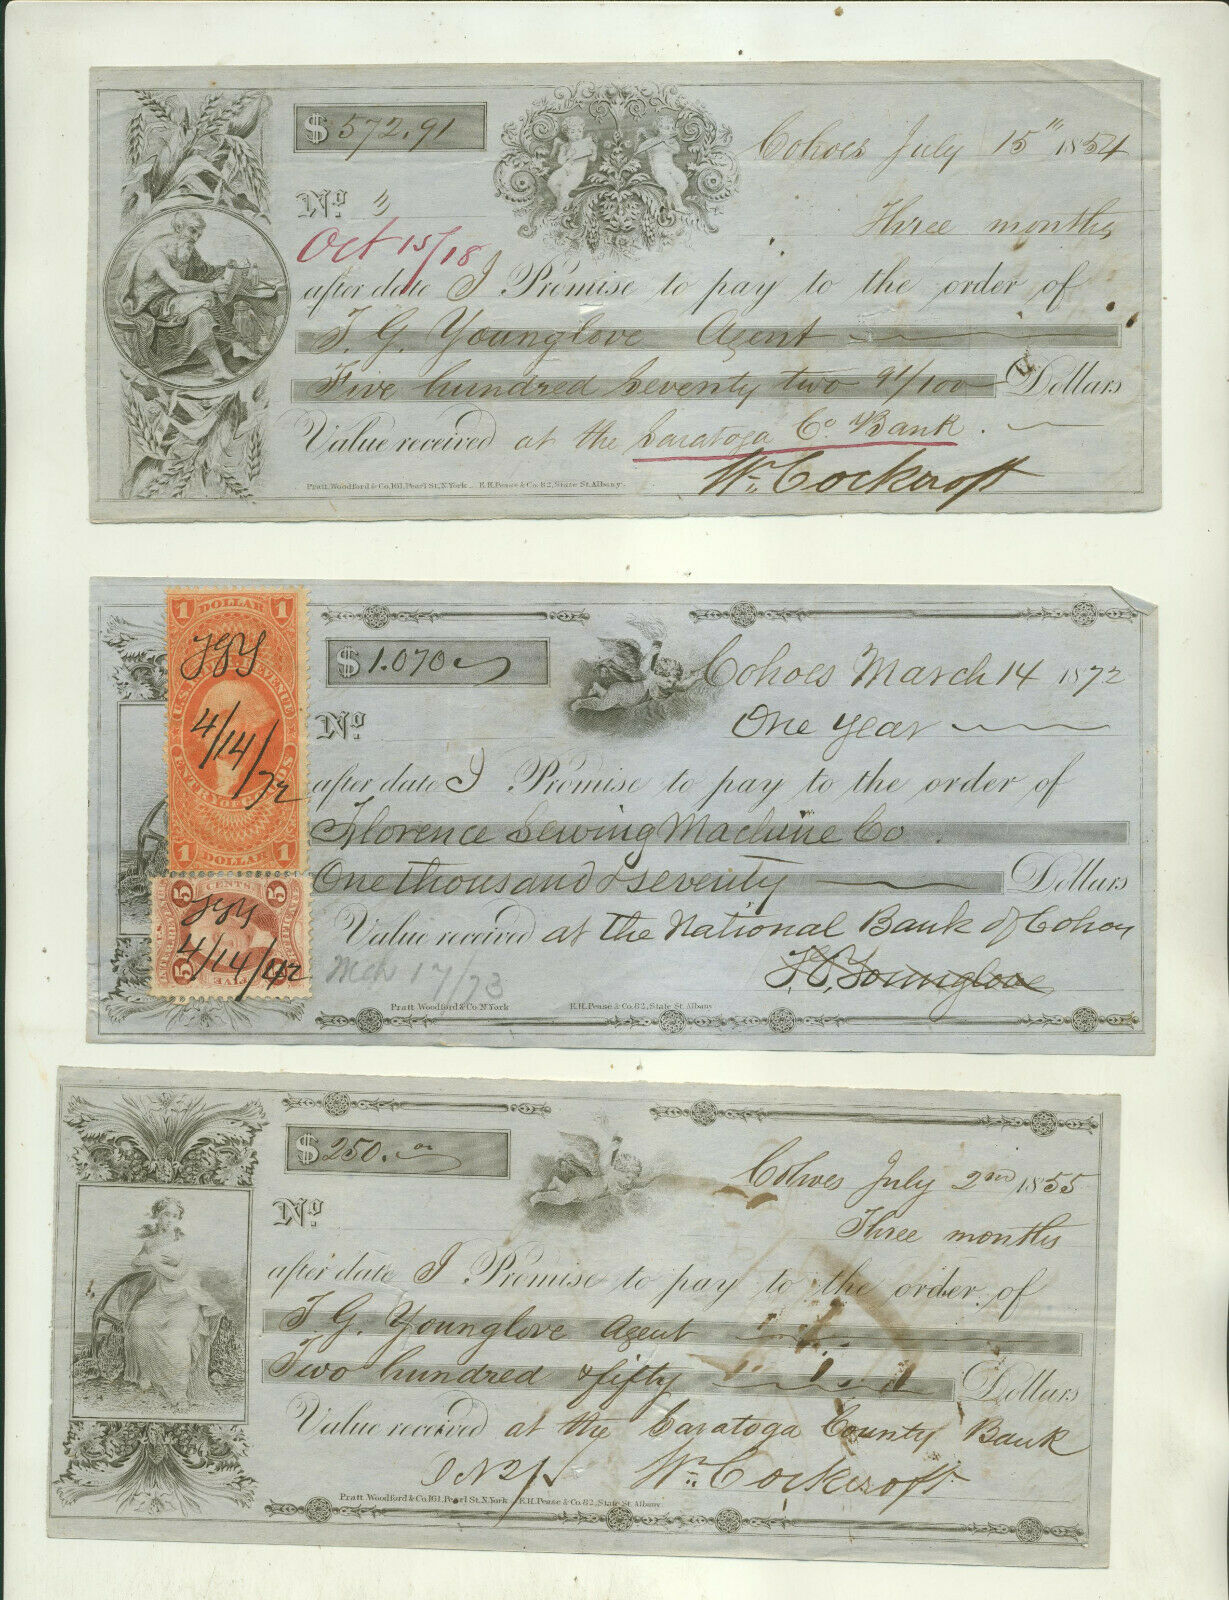 $ 572.91
Cohoes July 15" 1854
No. 3
Three months
Oct 15/18
after date I Promise to pay to the order of
T. G. Younglove Agent
Five hundred seventy two 91/100 Dollars
Value received at the Saratoga Co Bank.
Wm Cockcroft
Pratt, Woodford & Co, 161, Pearl St, N. York E.H. Pease & Co. 82, State St. Albany.
1 DOLLAR 1
U.S. INTER. REVENUE
TGY
4/14/72
1 DOLLAR 1
$ 1.070
Cohoes March 14 1872
No.
One year
after date I Promise to pay to the order of
Florence Sewing Machine Co.
One thousand & seventy Dollars
Value received at the National Bank of Cohoes
T. G. Younglove
Mch 17/73
Pratt Woodford & Co N. York E.H. Pease & Co. 82, State St. Albany
5 CENTS 5
TGY
4/14/72
5 FIVE 5
$ 250.00
Cohoes July 2nd 1855
No.
Three months
after date I Promise to pay to the order of
T. G. Younglove Agent
Two hundred & fifty Dollars
Value received at the Saratoga County Bank
Wm Cockcroft
Pratt Woodford & Co 161, Pearl St. N. York E.H. Pease & Co. 82, State St. Albany